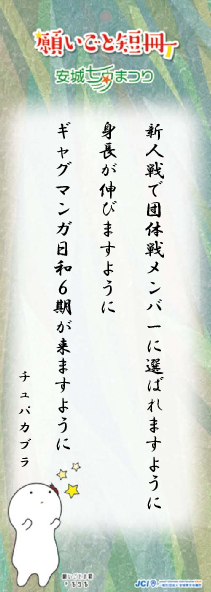 願いごと短冊
安城七夕まつり
新人戦で団体戦メンバーに選ばれますように
身長が伸びますように
ギャグマンガ日和6期が来ますように
チュパカブラ
JCI